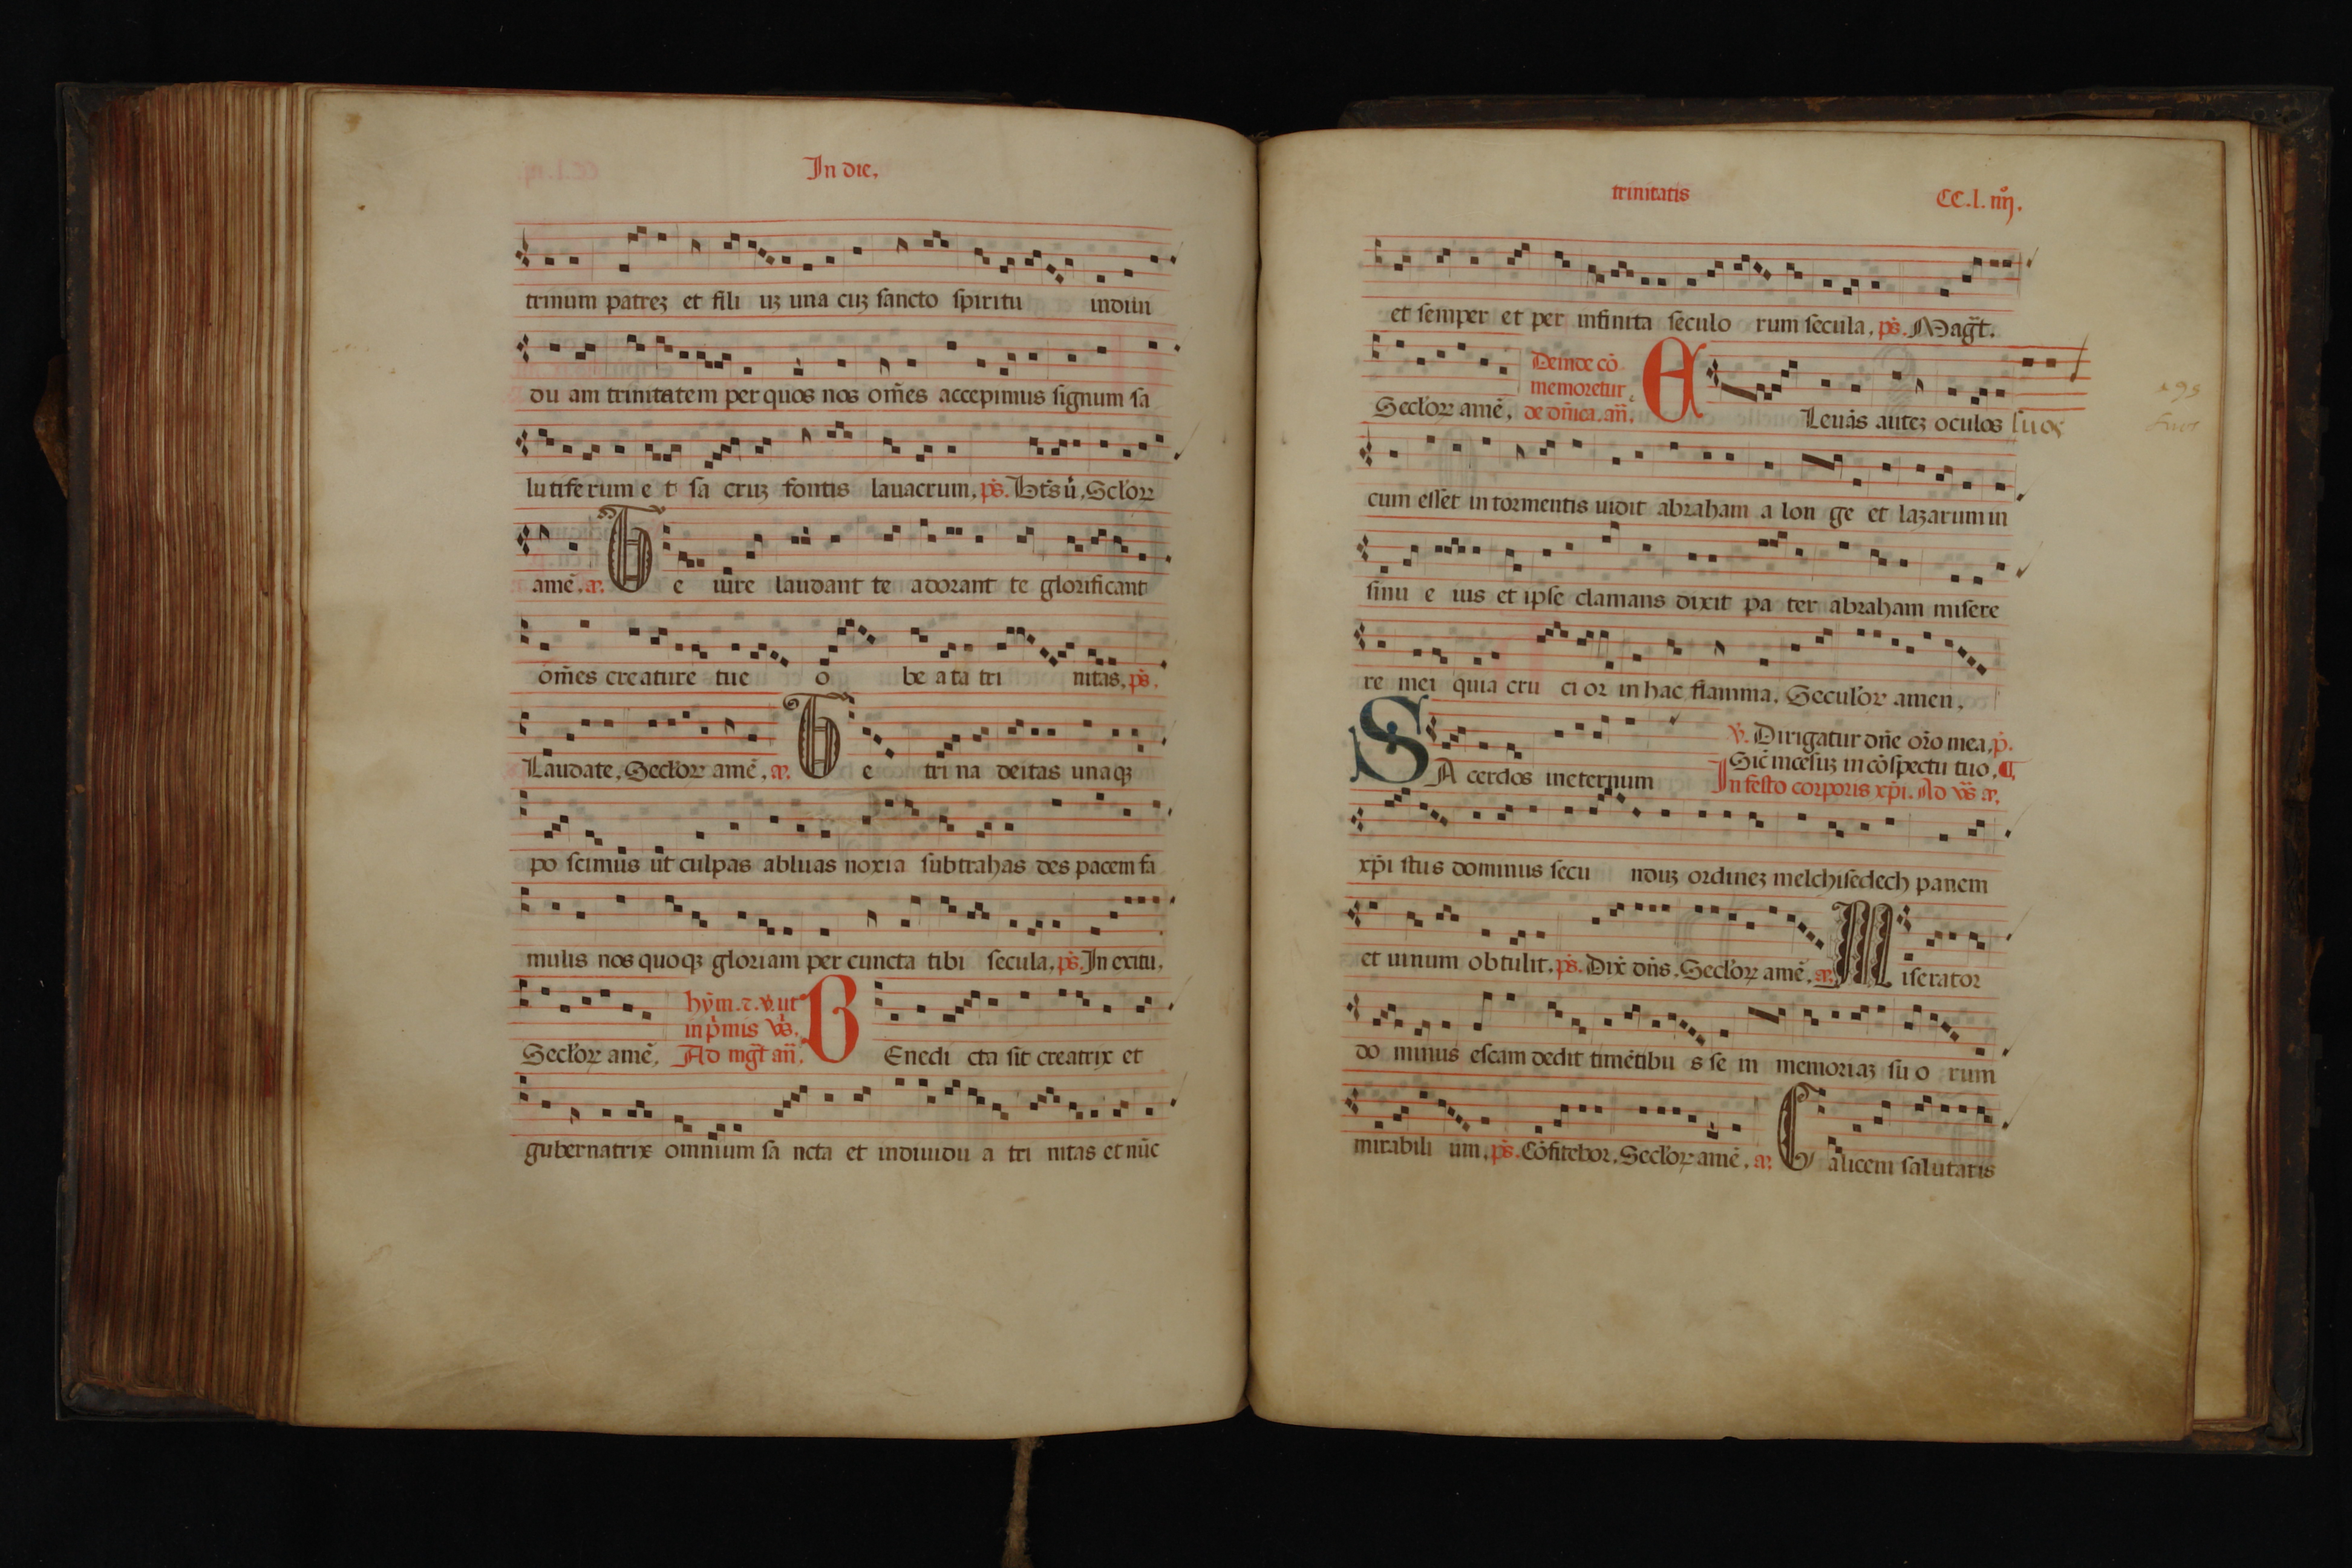 In die.
trinum patrez et fili uz una cuz sancto spiritu indiui
du am trinitatem per quos nos om̄es accepimus signum sa
lu tife rum e t sa cruz fontis lauacrum. ps̄. Scl'oꝝ
amē. æ. T e iure laudant te adorant te glorificant
om̄es creature tue o be a ta tri nitas. ps̄.
Laudate. Secl'oꝝ amē. æ. T e tri na deitas unaqꝫ
po scimus ut culpas abluas noxia subtrahas des pacem fa
mulis nos quoqꝫ gloriam per cuncta tibi secula. ps̄. In exitu.
hȳm. ⁊. v̄. ut
in p̄mis v̄s.
Secl'oꝝ amē. Ad mḡt an̄. B Enedi cta sit creatrix et
gubernatrix omnium sa ncta et indiuidu a tri nitas et nūc
trinitatis CC.l.iiij.
et semper et per infinita seculo rum secula. ps̄. Maḡt.
Deinde cō
memoretur
Secl'oꝝ amē. de dn̄ica. an̄. E Leuās autez oculos suos
cum esset in tormentis uidit abraham a lon ge et lazarum in
sinu e ius et ipse clamans dixit pa ter abraham misere
re mei quia cru ci or in hac flamma. Secul'oꝝ amen.
v̄. Dirigatur dn̄e or̄o mea. p̄.
Sic̄ incēsuz in cōspectu tuo. ¶
S A cerdos ineternum In festo corporis xp̄i. Ad v̄s æ.
xp̄i stus dominus secu nduz ordinez melchisedech panem
et uinum obtulit. ps̄. Dix̄ dn̄s. Secl'oꝝ amē. æ. M iserator
do minus escam dedit timētibu s se in memoriaz su o rum
mirabili um. ps̄. Cōfitebor. Secl'oꝝ amē. æ. C alicem salutaris